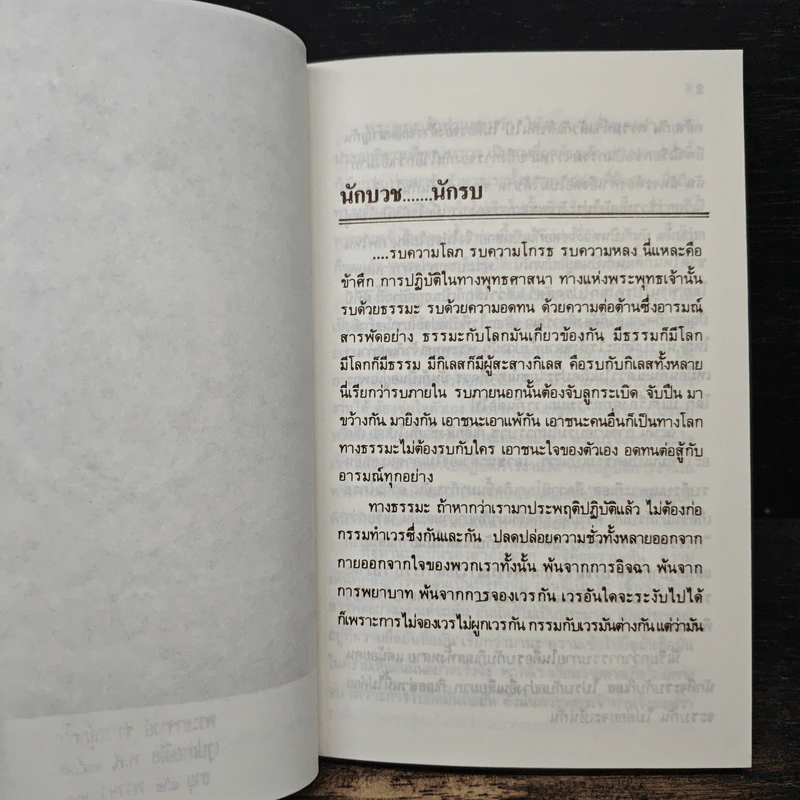 นักบวช.......นักรบ
....รบความโลภ รบความโกรธ รบความหลง นี่แหละคือ
ข้าศึก การปฏิบัติในทางพุทธศาสนา ทางแห่งพระพุทธเจ้านั้น
รบด้วยธรรมะ รบด้วยความอดทน ด้วยความต่อต้านซึ่งอารมณ์
สารพัดอย่าง ธรรมะกับโลกมันเกี่ยวข้องกัน มีธรรมก็มีโลก
มีโลกก็มีธรรม มีกิเลสก็มีผู้สะสางกิเลส คือรบกับกิเลสทั้งหลาย
นี่เรียกว่ารบภายใน รบภายนอกนั้นต้องจับลูกระเบิด จับปืน มา
ขว้างกัน มายิงกัน เอาชนะเอาแพ้กัน เอาชนะคนอื่นก็เป็นทางโลก
ทางธรรมะไม่ต้องรบกับใคร เอาชนะใจของตัวเอง อดทนต่อสู้กับ
อารมณ์ทุกอย่าง
ทางธรรมะ ถ้าหากว่าเรามาประพฤติปฏิบัติแล้ว ไม่ต้องก่อ
กรรมทำเวรซึ่งกันและกัน ปลดปล่อยความชั่วทั้งหลายออกจาก
กายออกจากใจของพวกเราทั้งนั้น พ้นจากการอิจฉา พ้นจาก
การพยาบาท พ้นจากการจองเวรกัน เวรอันใดจะระงับไปได้
ก็เพราะการไม่จองเวรไม่ผูกเวรกัน กรรมกับเวรมันต่างกัน แต่ว่ามัน